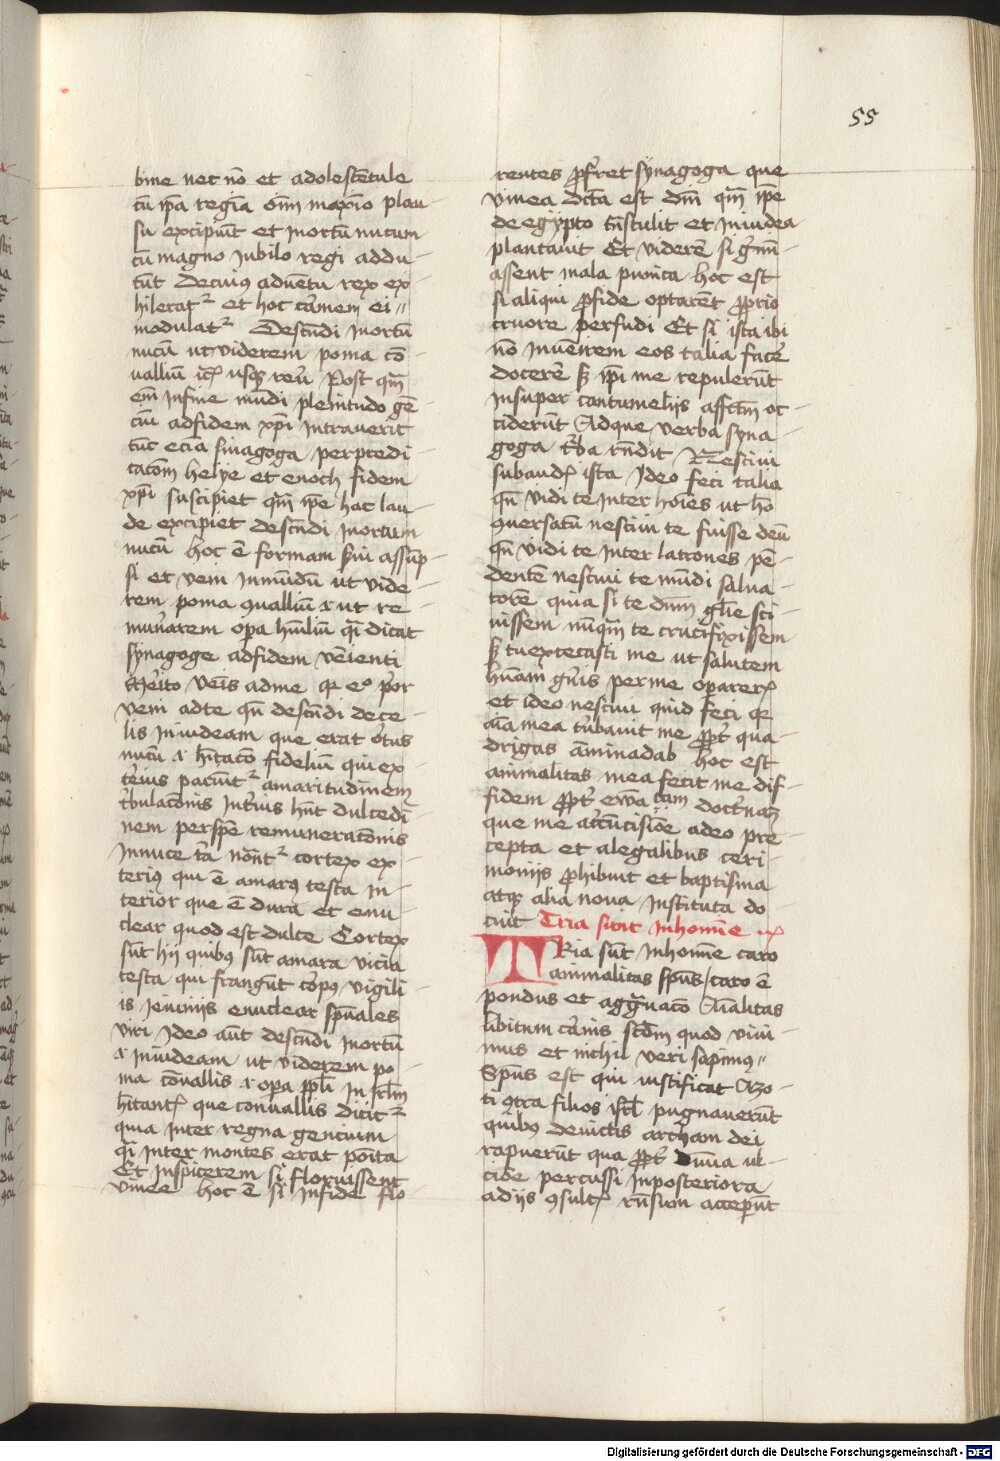 55
bine nec nō et adolescētule
cū ip̄a regīa om̄i maxīo plau-
su excipiūt et inortū nucum
cū magno iubilo regi addu-
cūt Decuiꝰ aduētu rex ex-
hileratᷣ et hoc carmem ei
modulatᷣ Descēdi inortū
nucū ut viderem poma cō-
vallium
em̄ infine mūdi plenitudo gē-
ciū adfidem xp̄i intrauerit
tūc eciā sinagoga perp̄redi-
cacōm helye et enoch fidem
xp̄i suscipiet qm̄ ip̄e hac lau-
de excipiet descēdi inortum
nucū hoc ē formam s̄ui assūp-
si et veni inmūdū ut vide-
rem poma ꝯualliū ut re-
mun̄arem op̄a hūiliū qͥ dicat
synagoge adfidem vēienti
Merito venis adme qr ego prior
veni adte qn̄ descēdi dece-
lis iniudeam que erat ortus
nucū hītacō fideliū qui ex-
terius paciūtᷣ amaritudinem
tribulacōnis int̄ius hn̄t dulcedi-
nem perspē remuneracōnis
Innuce cortex ex-
teriꝰ qui ē amarꝰ testa in-
terior que ē dura et enu-
clear quod est dulce Cortex
sūt hij quibꝰ sūt amara vicia
testa qui frangūt corpꝰ vigili-
is ieiunijs enuclear sp̄uales
viri Ideo aūt descēdi inortū
iniudeam ut viderem po-
ma cōuallis op̄a pp̄li in isrl̄m
hītantꝭ que conuallis dicitᷣ
quia inter regna gencium
qͥ inter montes erat poīta
Et inspicerem si floruissent
vinee hoc ē si infide flo-
rentes p̄fr̄et synagoga que
vinea dc̄ta est dm̄ qm̄ ip̄e
de egypto trāstulit et iniudea
plantauit Et viderē si germi-
assent mala punica hoc est
si aliqui ꝓfide optarēt ꝓprio
cruore perfudi Et si ista ibi
nō inuēirem eos talia facere
docerē sꝫ ip̄i me repulerūt
insuper contumelijs affectum oc-
ciderūt Adque verba syna-
goga rn̄dit Nesciui
subaud̄ ista Ideo feci talia
qn̄ vidi te inter hoīes ut hō
ꝯuersatū nesciui te fuisse deū
qn̄ vidi te inter latrones pē-
dentē nesciui te mūdi salua-
torē quia si te dn̄m glīe sci-
uissem nūqͣm te crucifixissem
sꝫ tu excecasti me ut salutem
hūani gn̄is per me operarerꝭ
et ideo nesciui quid feci qr
aīa mea turbauit me ꝓpt̄ qua-
drigas aminadab hoc est
animalitas mea fecit me dif-
fidem ꝓpt̄ ewācam doctrinaꝫ
que me a circūcisiōe adeo pre-
cepta et alegalibus ceri-
monijs ꝓhibuit et baptisma
atqꝫ alia noua instituta do-
cuit Tria sunt inhomīe
TRia sūt inhomīe caro
animalitas sp̄us caro ē
pondus et aggrauacō Aīalitas
libitum carnis scd̄m quod viui-
mus et nichil veri sapimꝰ
Sp̄us est qui iustificat Azo-
ti ꝯtra filios isrl̄ pugnauerūt
quibꝰ deuictis archam dei
rapuerūt qua ꝓpt̄ diuīa ul-
cione percussi inposteriora
adijs ꝯsultꝭ rursum acceperūt
Digitalisierung gefördert durch die Deutsche Forschungsgemeinschaft - DFG